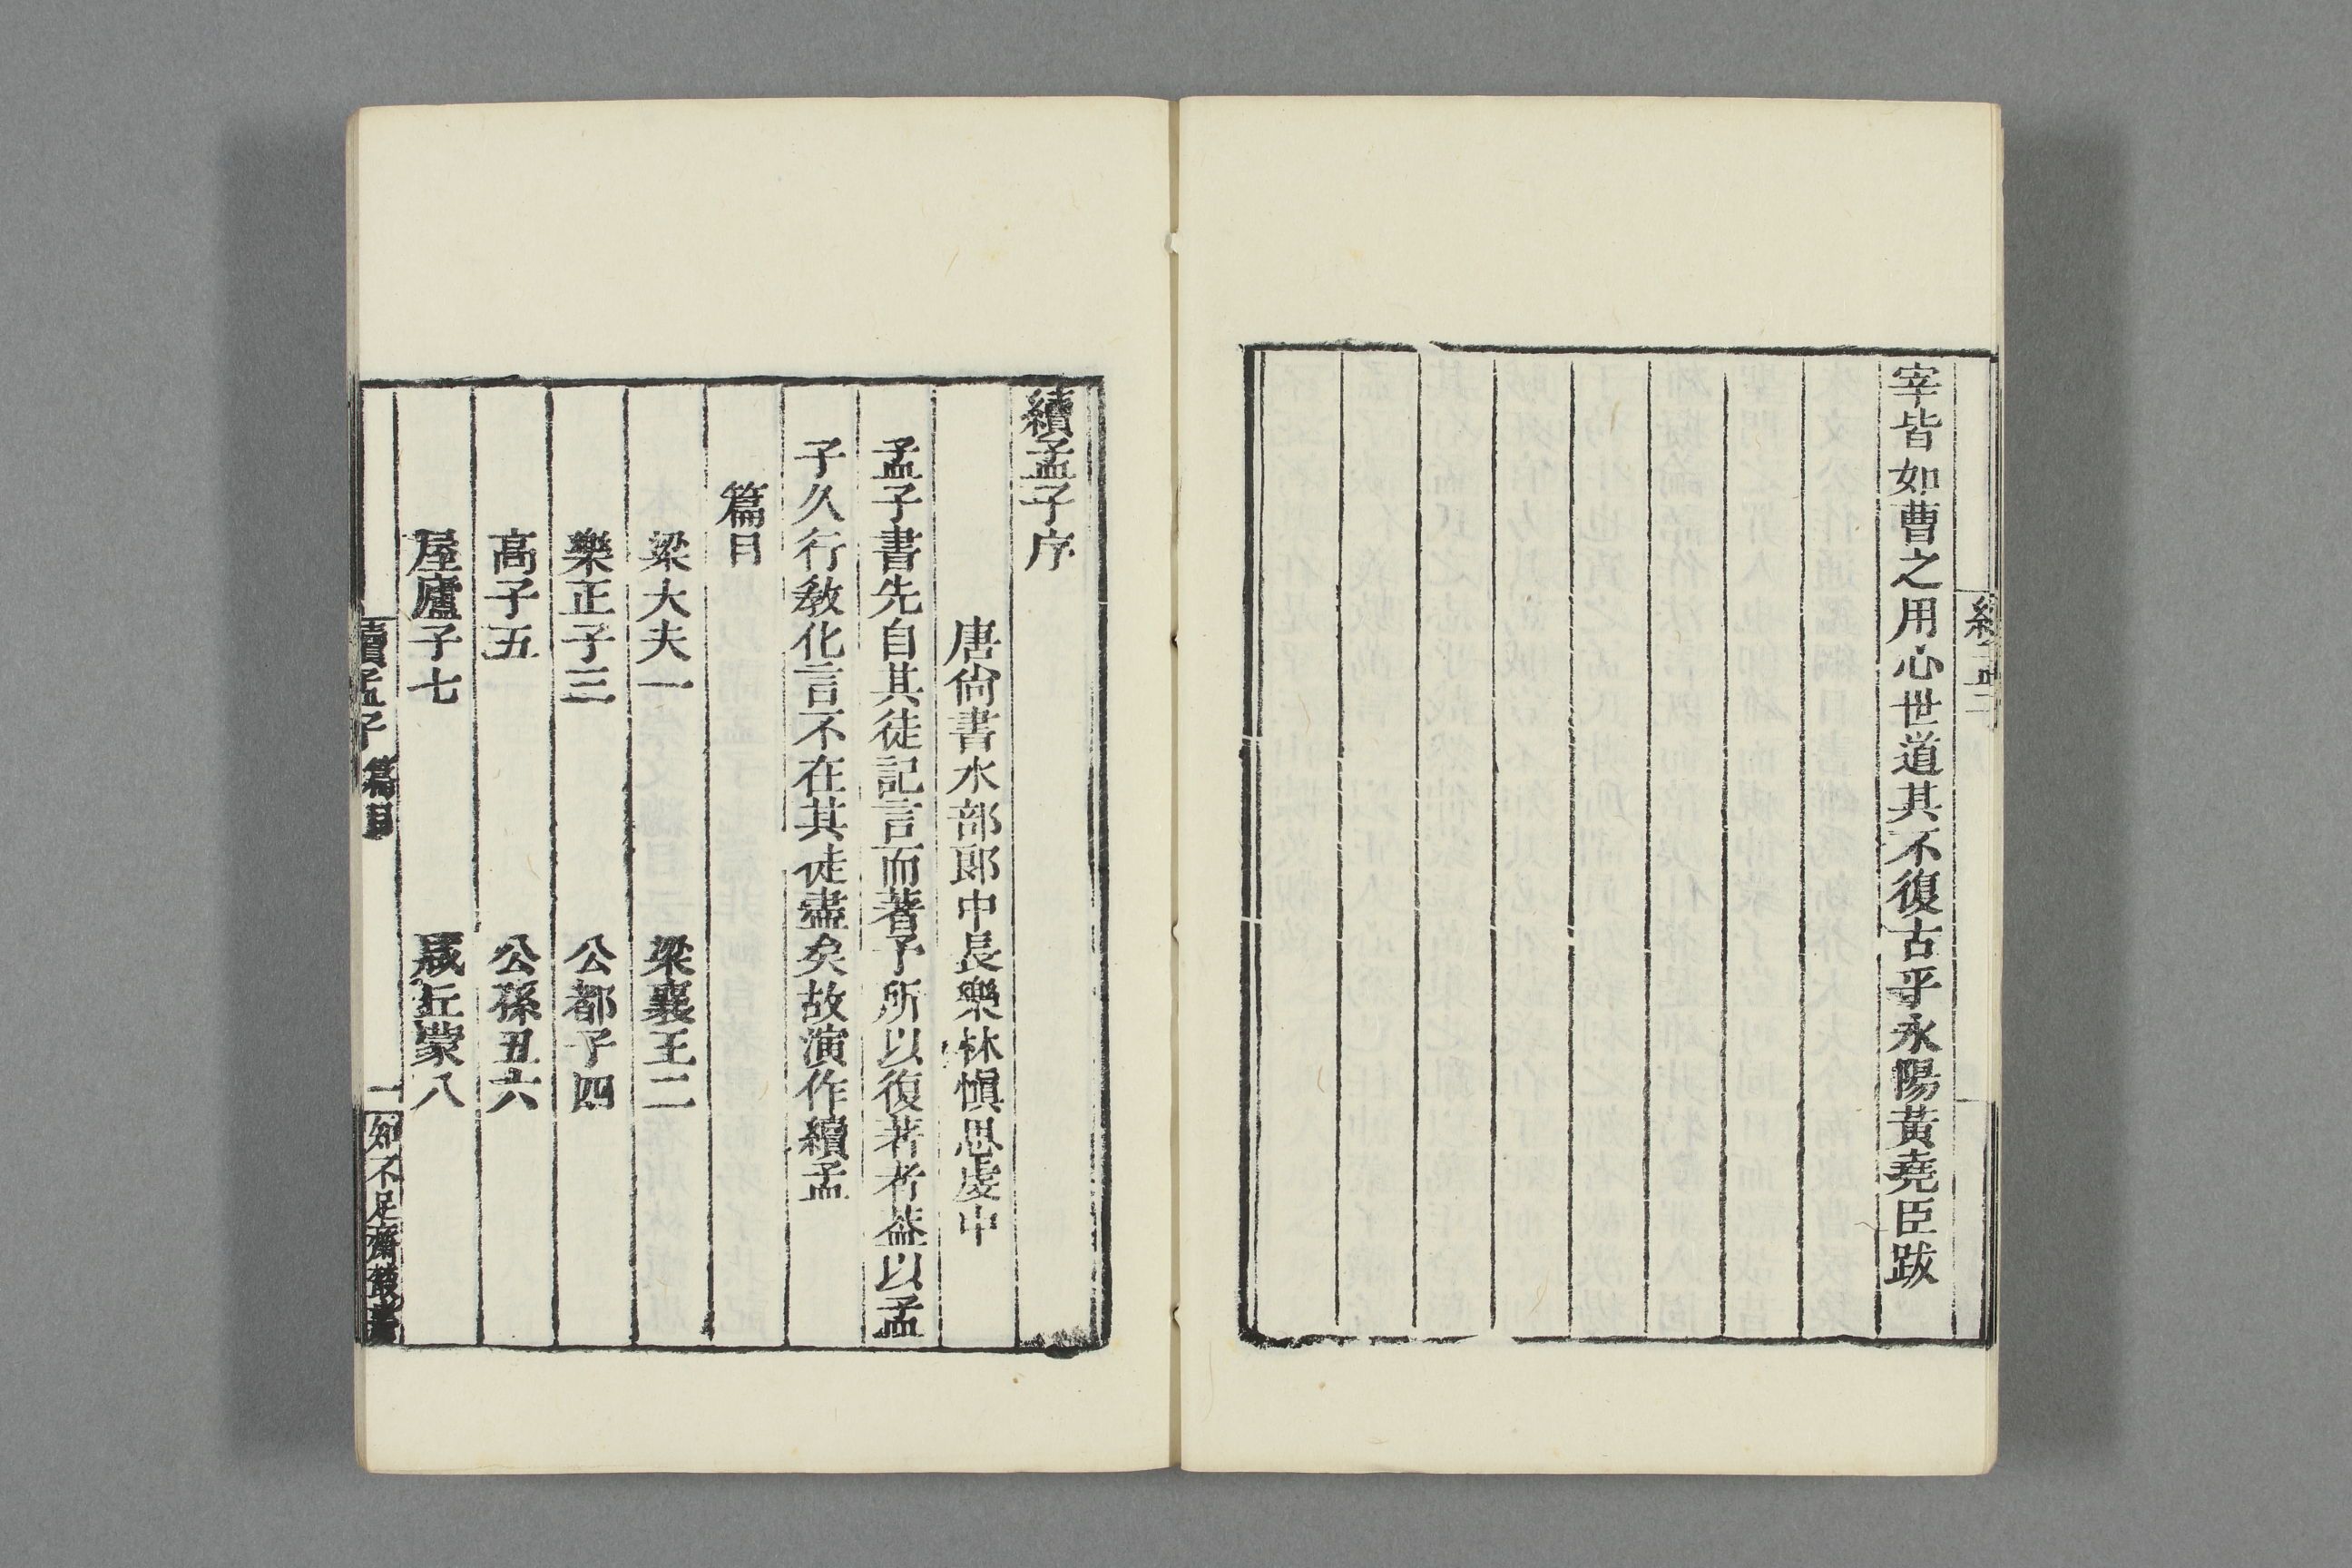 宰皆如曹之用心世道其不復古乎永陽黃堯臣跋
續孟子序
唐尙書水部郎中長樂林愼思虔中
孟子書先自其徒記言而著予所以復著者葢以孟
子久行敎化言不在其徒盡矣故演作續孟
篇目
梁大夫一　梁襄王二
樂正子三　公都子四
高子五　公孫丑六
屋廬子七　咸丘蒙八
續孟子　篇目　一　知不足齋叢書